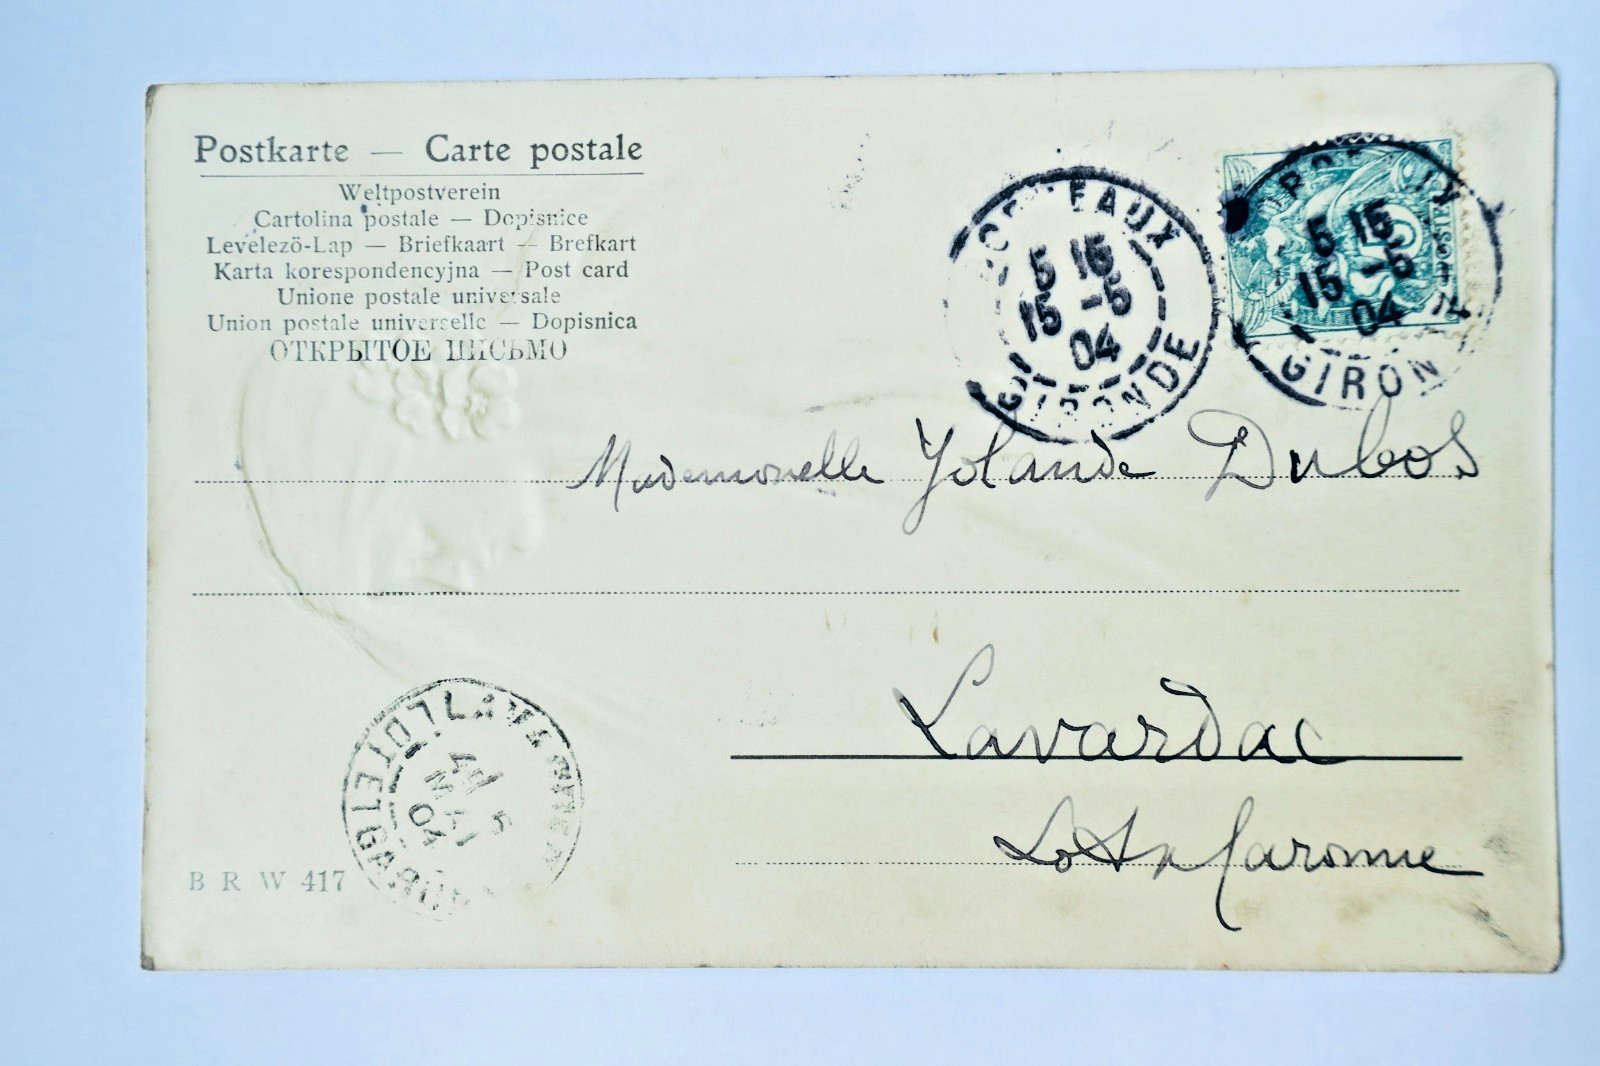 Postkarte — Carte postale
Weltpostverein
Cartolina postale — Dopisnice
Levelezö-Lap — Briefkaart — Brefkart
Karta korespondencyjna — Post card
Unione postale universale
Union postale universelle — Dopisnica
ОТКРЫТОЕ ПИСЬМО
BORDEAUX
5 15
15 -5
04
GIRONDE
BORDEAUX
5 15
15 -5
04
GIRON
Mademoiselle Yolande Dubos
Lavardac
Lot & Garonne
LAVARDAC
MAI
04
LOT ET GARONNE
B R W 417